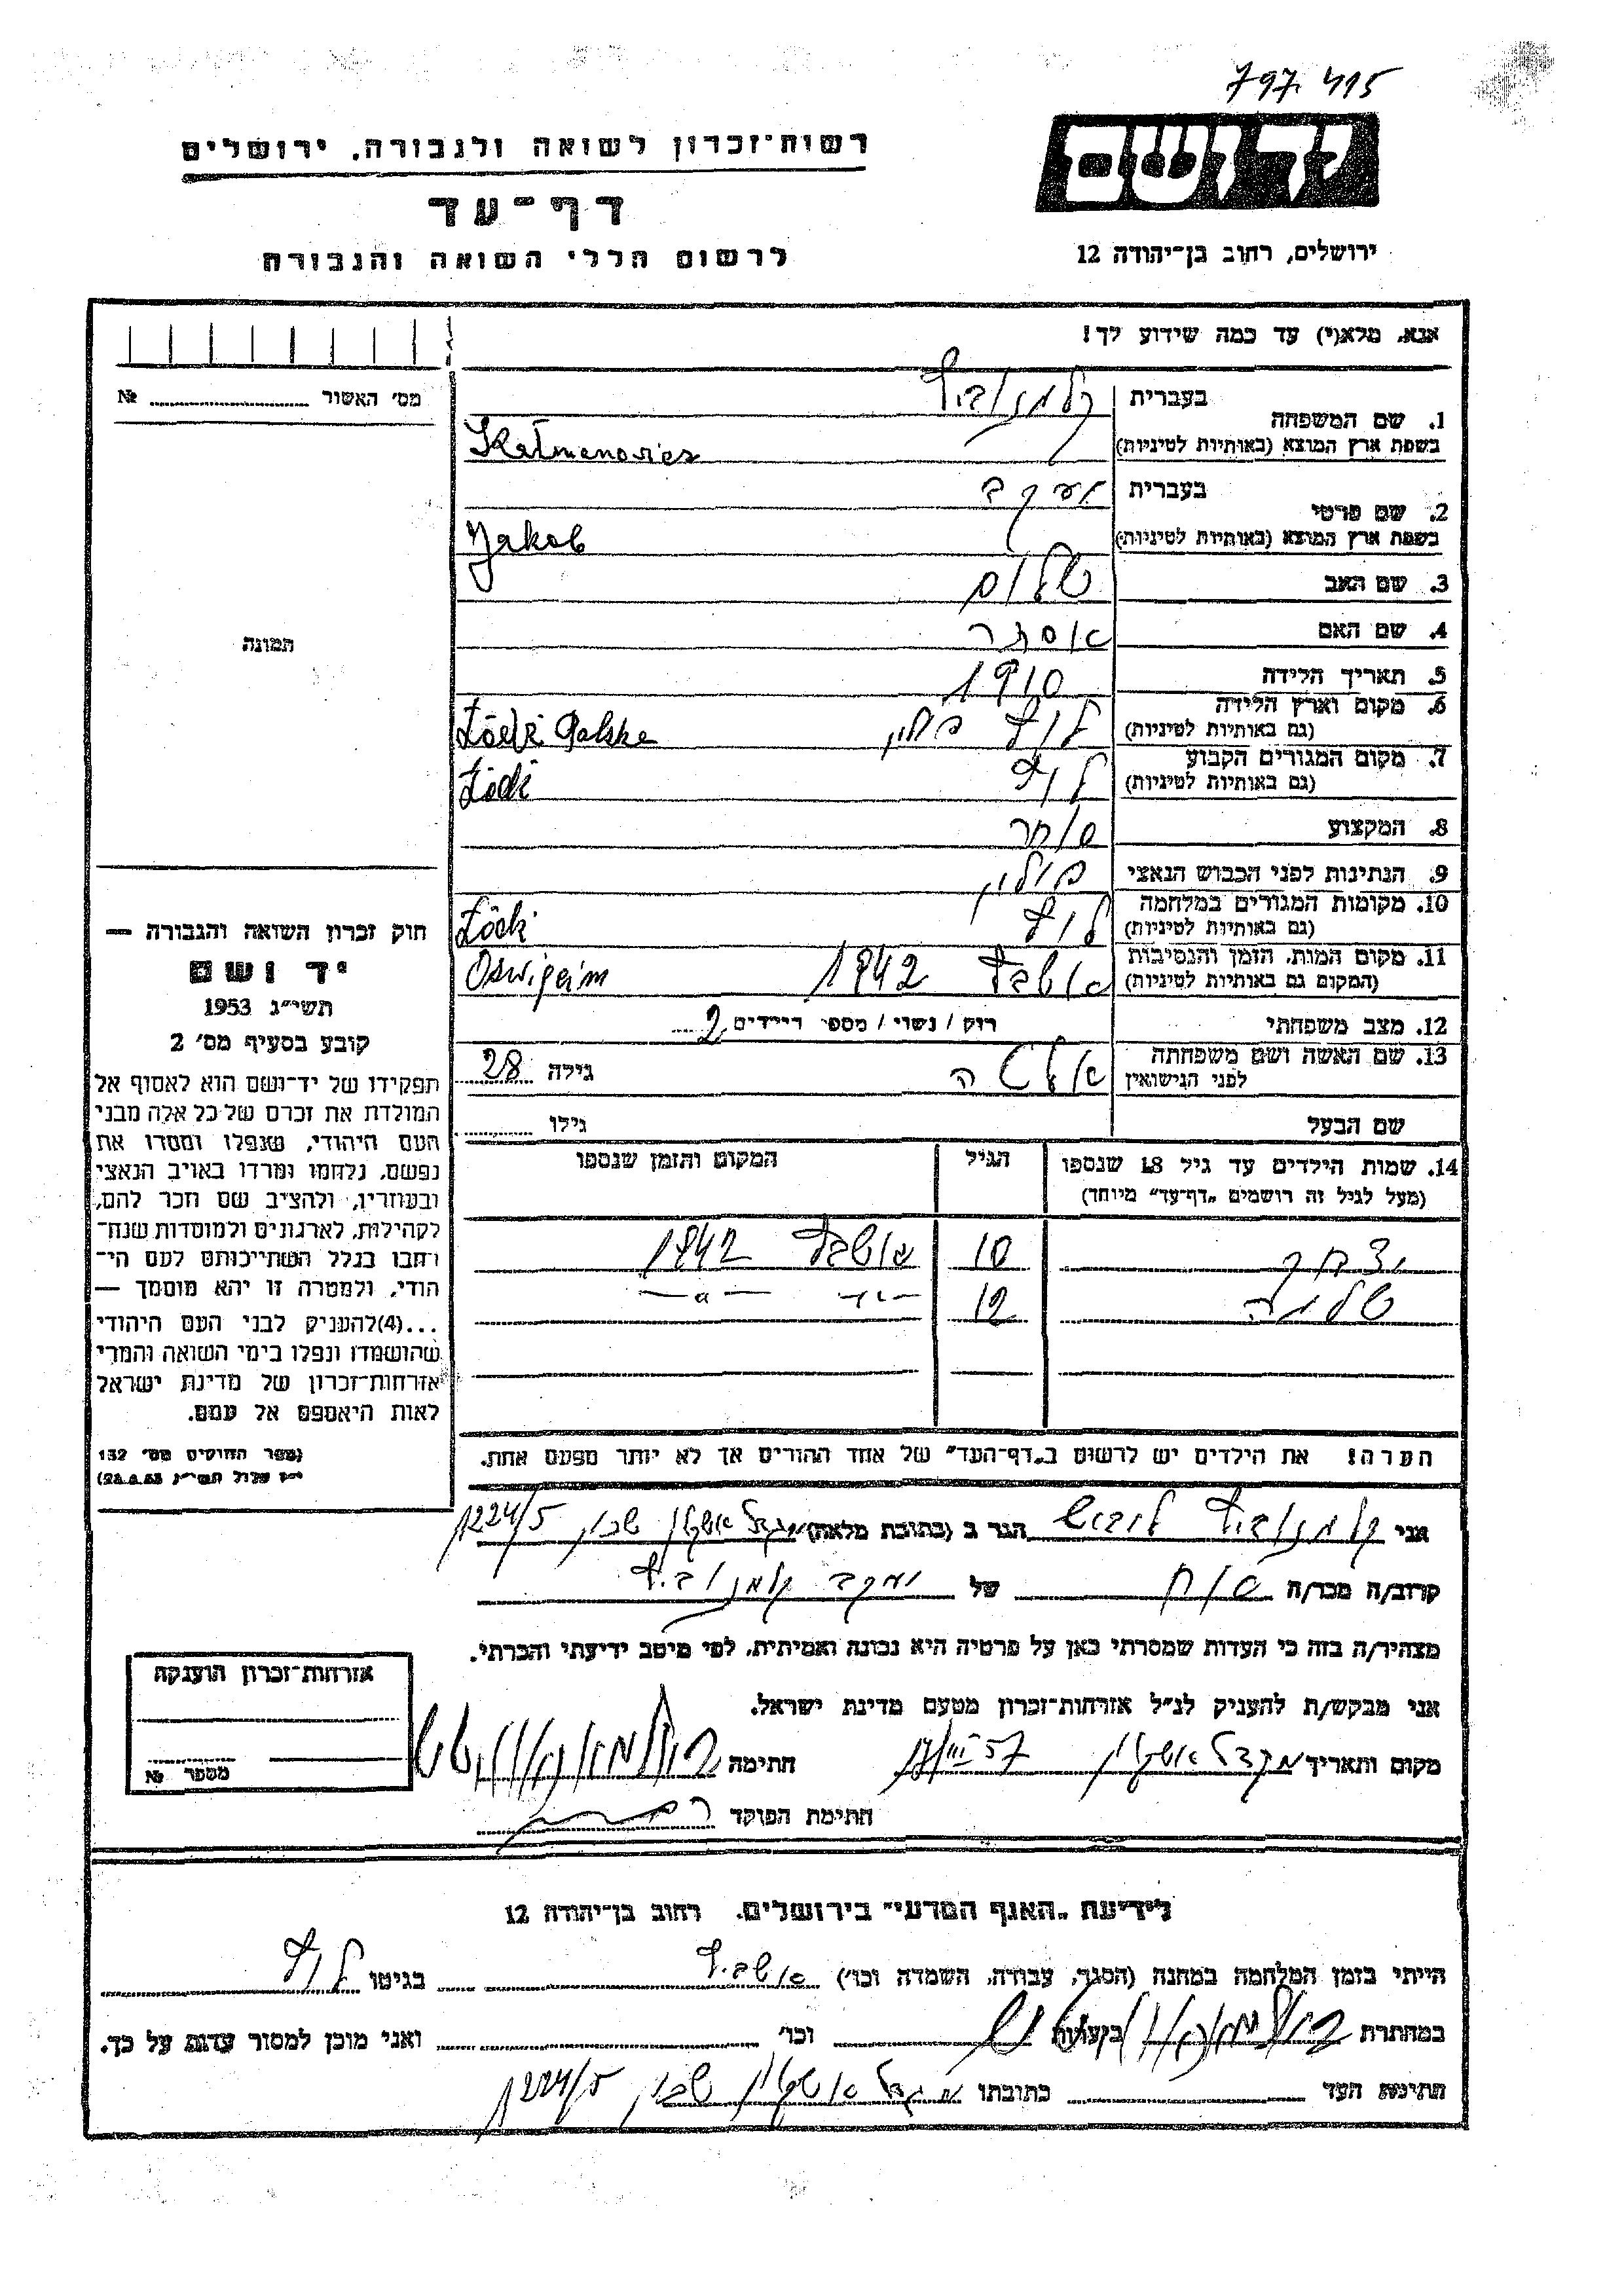 797 415
יד ושם
רשות־זכרון לשואה ולגבורה, ירושלים
דף־עד
לרשום חללי השואה והגבורה
ירושלים, רחוב בן־יהודה 12
אנא, מלא(י) עד כמה שידוע לך!
מס' האשור № ............
תמונה
1. שם המשפחה בעברית קלמנוביץ
בשפת ארץ המוצא (באותיות לטיניות) Kalmenovicz
2. שם פרטי בעברית יעקב
בשפת ארץ המוצא (באותיות לטיניות) Jakob
3. שם האב שלום
4. שם האם אסתר
5. תאריך הלידה 1910
6. מקום וארץ הלידה לודז פולין Łódź Polska
(גם באותיות לטיניות)
7. מקום המגורים הקבוע לודז Łódź
(גם באותיות לטיניות)
8. המקצוע סוחר
9. הנתינות לפני הכבוש הנאצי פולין
10. מקומות המגורים במלחמה לודז Łódź
(גם באותיות לטיניות)
11. מקום המות, הזמן והנסיבות אושביץ 1942 Oswięcim
(המקום גם באותיות לטיניות)
12. מצב משפחתי רווק / נשוי / מספר הילדים 2
13. שם האשה ושם משפחתה גילה 28
לפני הנישואין
שם הבעל גילו ........
14. שמות הילדים עד גיל 18 שנספו הגיל המקום והזמן שנספו
(מעל לגיל זה רושמים „דף־עד" מיוחד)
יצחק 10 אושביץ 1942
שלמה 12
הערה! את הילדים יש לרשום ב„דף־העד" של אחד ההורים אך לא יותר מפעם אחת.
חוק זכרון השואה והגבורה —
יד ושם
תשי"ג 1953
קובע בסעיף מס' 2
תפקידו של יד־ושם הוא לאסוף אל
המולדת את זכרם של כל אלה מבני
העם היהודי, שנפלו ומסרו את
נפשם, נלחמו ומרדו באויב הנאצי
ובעוזריו, ולהציב שם וזכר להם,
לקהילות, לארגונים ולמוסדות שנח־
רבו בגלל השתייכותם לעם הי־
הודי, ולמטרה זו יהא מוסמך —
...(4) להעניק לבני העם היהודי
שהושמדו ונפלו בימי השואה והמרי
אזרחות־זכרון של מדינת ישראל
לאות היאספם אל עמם.
(ספר החוקים מס' 132
י"ז אלול תשי"ג 28.8.53)
אני קלמנוביץ ליבוש הגר ב (כתובת מלאה) מגדל אשקלון שכון 224/5
קרוב/ה מכר/ה של יעקב קלמנוביץ
מצהיר/ה בזה כי העדות שמסרתי כאן על פרטיה היא נכונה ואמיתית, לפי מיטב ידיעתי והכרתי.
אני מבקש/ת להעניק לנ"ל אזרחות־זכרון מטעם מדינת ישראל.
מקום ותאריך מגדל אשקלון חתימה
חתימת הפוקד
אזרחות־זכרון הוענקה
מספר №
לידיעת „האגף המדעי" בירושלים. רחוב בן־יהודה 12
הייתי בזמן המלחמה במחנה (הסגר, עבודה, השמדה וכו') אושביץ בגיטו לודז
במחתרת ביערות וכו' ואני מוכן למסור עדות על כך.
חתימת העד כתובתו מגדל אשקלון שכון 224/5